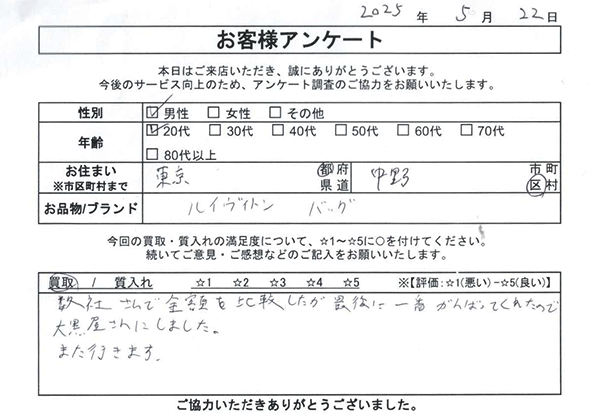 2025 年 5 月 22 日
お客様アンケート
本日はご来店いただき、誠にありがとうございます。
今後のサービス向上のため、アンケート調査のご協力をお願いいたします。
性別 男性 女性 その他
年齢 20代 30代 40代 50代 60代 70代
80代以上
お住まい ※市区町村まで 東京 都府県道 中野 市町区村
お品物/ブランド ルイヴィトン バッグ
今回の買取・質入れの満足度について、☆1～☆5に○を付けてください。
続いてご意見・ご感想などのご記入をお願いいたします。
買取 / 質入れ ☆1 ☆2 ☆3 ☆4 ☆5 ※【評価:☆1(悪い)－☆5(良い)】
数社さんで金額を比較したが最後に一番がんばってくれたので
大黒屋さんにしました。
また行きます。
ご協力いただきありがとうございました。